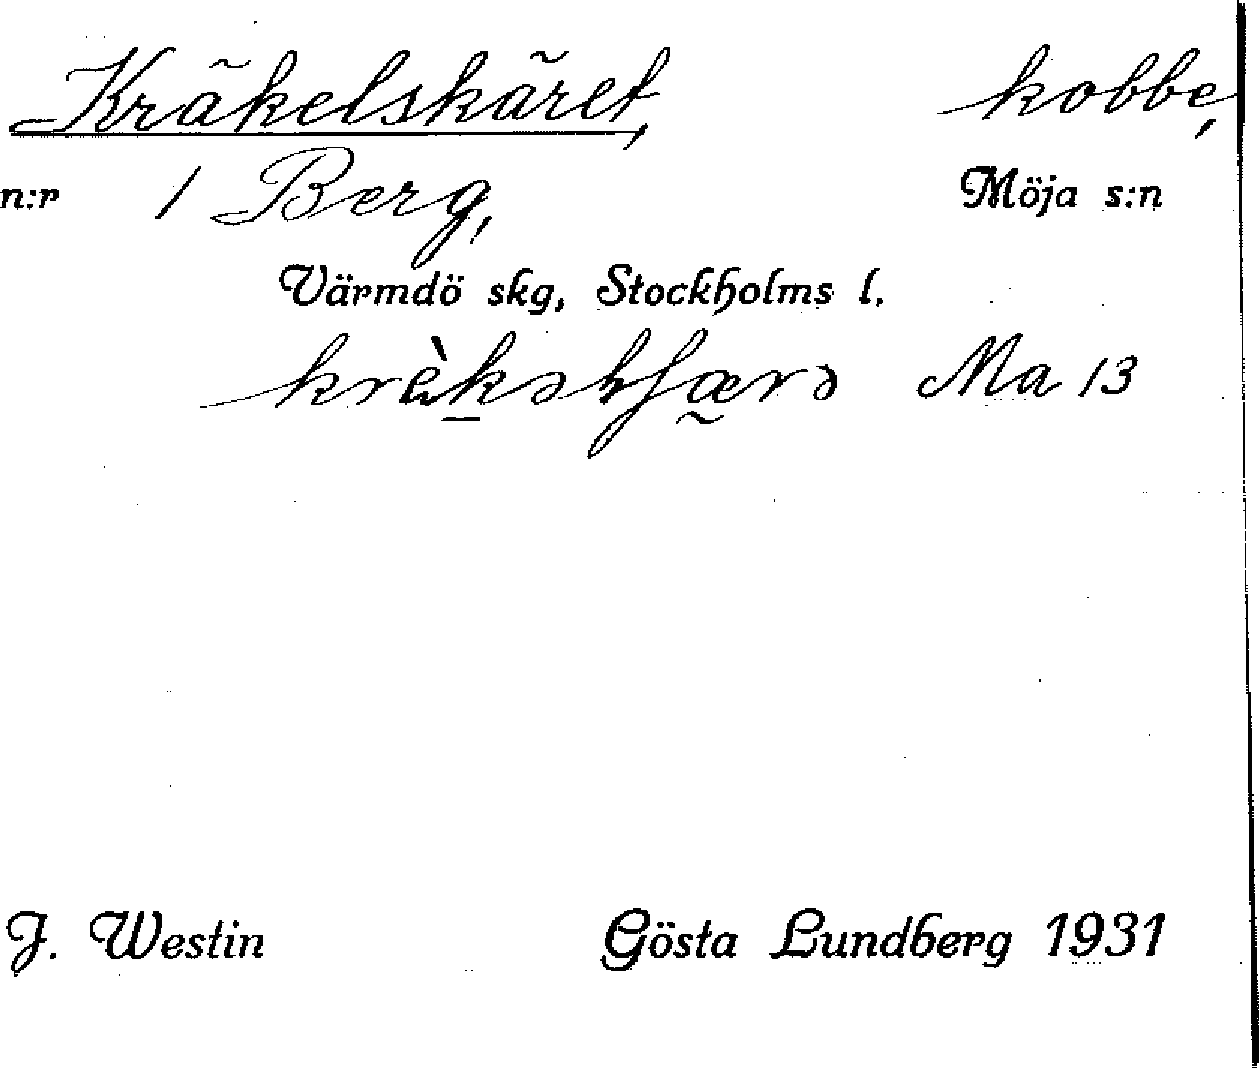 Kräkelskäret, kobbe,
n:r 1 Berg, Möja s:n
Värmdö skg, Stockholms l.
Ma 13
J. Westin Gösta Lundberg 1931